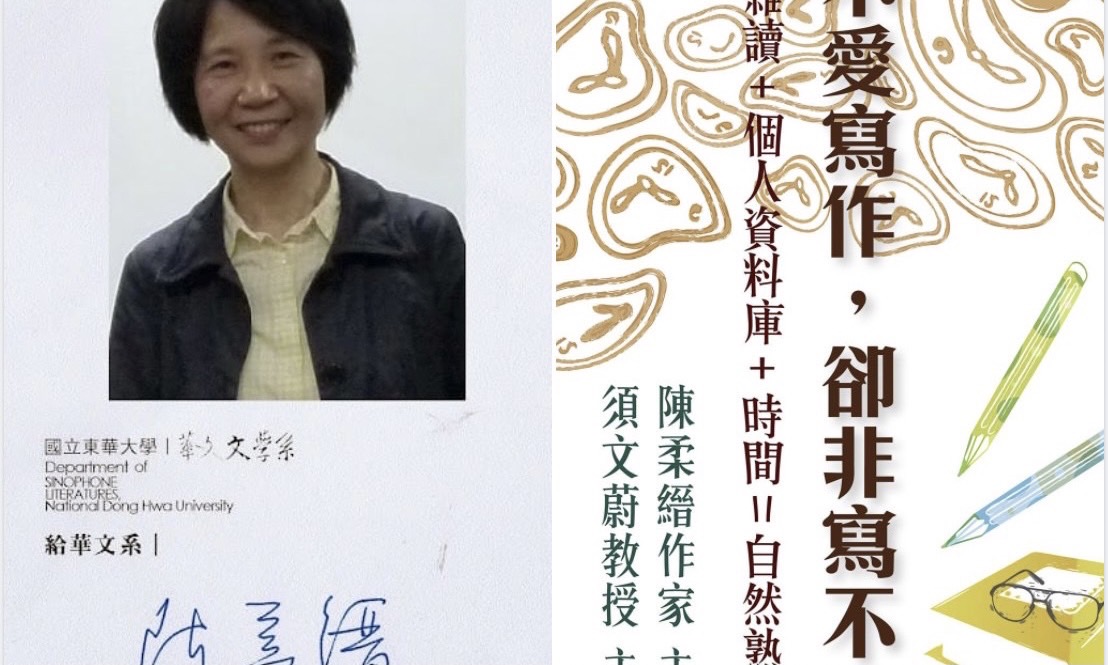 國立東華大學｜華文文学系
Department of
SINOPHONE
LITERATURES,
National Dong Hwa University
給華文系｜
陳柔縉
不愛寫作，卻非寫不
雜讀+個人資料庫+時間=自然熟
陳柔縉作家
須文蔚教授